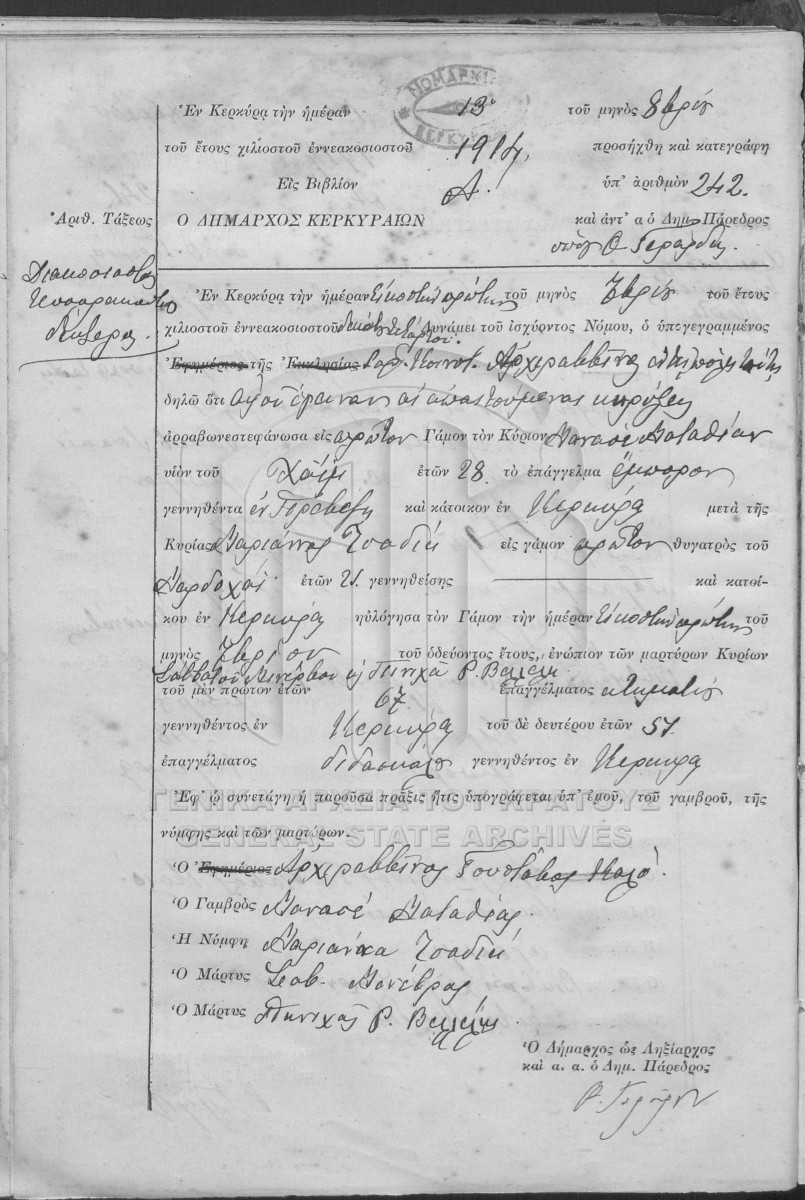 ΝΟΜΑΡΧΙΑ ΚΕΡΚΥΡΑΣ
Ἐν Κερκύρᾳ τὴν ἡμέραν 13 τοῦ μηνὸς 8βρίου
τοῦ ἔτους χιλιοστοῦ ἐννεακοσιοστοῦ 1914 προσήχθη καὶ κατεγράφη
Εἰς Βιβλίον Α. ὑπ' ἀριθμὸν 242.
Ἀριθ. Τάξεως Ο ΔΗΜΑΡΧΟΣ ΚΕΡΚΥΡΑΙΩΝ καὶ ἀντ' α ὁ Δημ. Πάρεδρος
Διακοσιοστὸς
τεσσαρακοστὸς
δεύτερος.
Ἐν Κερκύρᾳ τὴν ἡμέραν εἰκοστὴν πρώτην τοῦ μηνὸς 7βρίου τοῦ ἔτους
χιλιοστοῦ ἐννεακοσιοστοῦ δεκάτου τετάρτου. Δυνάμει τοῦ ἰσχύοντος Νόμου, ὁ ὑπογεγραμμένος
Ἐφημέριος τῆς Ἐκκλησίας Ἀρχιραββῖνος
δηλῶ ὅτι ἀφοῦ ἔγειναν αἱ ἀπαιτούμεναι κηρύξεις
ἀρραβωνεστεφάνωσα εἰς πρῶτον Γάμον τὸν Κύριον Μανασὲ Ματαθίαν
υἱὸν τοῦ Χαΐμ ἐτῶν 28. τὸ ἐπάγγελμα ἔμπορον
γεννηθέντα ἐν Πρεβέζῃ καὶ κάτοικον ἐν Κερκύρᾳ μετὰ τῆς
Κυρίας Μαριάννας Τσαδίκ εἰς γάμον πρῶτον θυγατρὸς τοῦ
Μαρδοχάϊ ἐτῶν 21. γεννηθείσης καὶ κατοί-
κου ἐν Κερκύρᾳ ηὐλόγησα τὸν Γάμον τὴν ἡμέραν εἰκοστὴν πρώτην τοῦ
μηνὸς 7βρίου τοῦ ὁδεύοντος ἔτους, ἐνώπιον τῶν μαρτύρων Κυρίων
Σάββατου Μινέρβου καὶ Πινχᾶ Ρ. Βελέλη
τοῦ μὲν πρῶτον ἐτῶν 67. ἐπαγγέλματος κτηματίου
γεννηθέντος ἐν Κερκύρᾳ τοῦ δὲ δευτέρου ἐτῶν 51.
ἐπαγγέλματος διδασκάλου γεννηθέντος ἐν Κερκύρᾳ
Ἐφ' ᾧ συνετάγη ἡ παροῦσα πρᾶξις ἥτις ὑπογράφεται ὑπ' ἐμοῦ, τοῦ γαμβροῦ, τῆς
ΓΕΝΙΚΑ ΑΡΧΕΙΑ ΤΟΥ ΚΡΑΤΟΥΣ
νύμφης καὶ τῶν μαρτύρων.
GENERAL STATE ARCHIVES
Ὁ Ἐφημέριος Ἀρχιραββῖνος
Ὁ Γαμβρὸς Μανασὲ Ματαθίας.
Ἡ Νύμφη Μαριάννα Τσαδίκ
Ὁ Μάρτυς Σαβ. Μινέρβος
Ὁ Μάρτυς Πινχᾶς Ρ. Βελέλης
Ὁ Δήμαρχος ὡς Ληξίαρχος
καὶ α. α. ὁ Δημ. Πάρεδρος